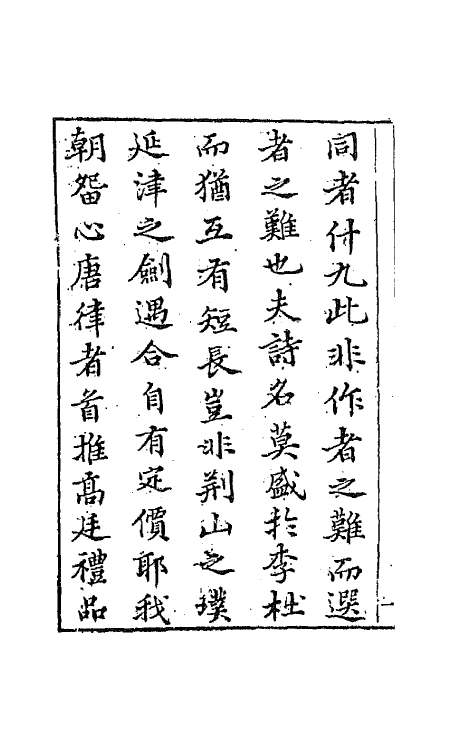 同者什九此非作者之難而選
者之難也夫詩名莫盛於李杜
而猶互有短長豈非荆山之璞
延津之劍遇合自有定價耶我
朝畱心唐律者首推高廷禮品